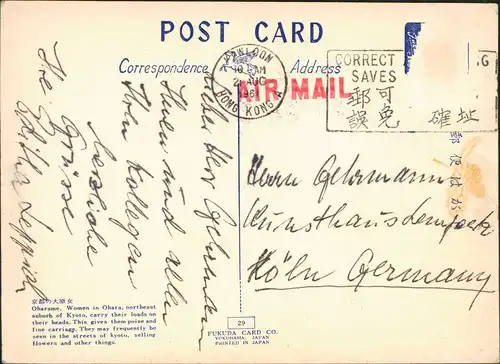 POST CARD
Correspondence
Address
KOWLOON
10 AM
2 AUG
196
HONG KONG
AIR MAIL
CORRECT
SAVES
郵 可
誤 免 確 址
郵便はがき
Herrn Gehrmann
Kunsthaus Lempertz
Köln Germany
Lieber Herr Gehrmann
Ihnen und allen
Ihren Kollegen
herzliche
Grüsse
Ihre
京都の大原女
Oharame, Women in Ohara, northeast
suburb of Kyoto, carry their loads on
their heads. This gives them poise and
fine carriage. They may frequently be
seen in the streets of kyoto, selling
flowers and other things.
29
FUKUDA CARD CO.
YOKOHAMA, JAPAN
PRINTED IN JAPAN